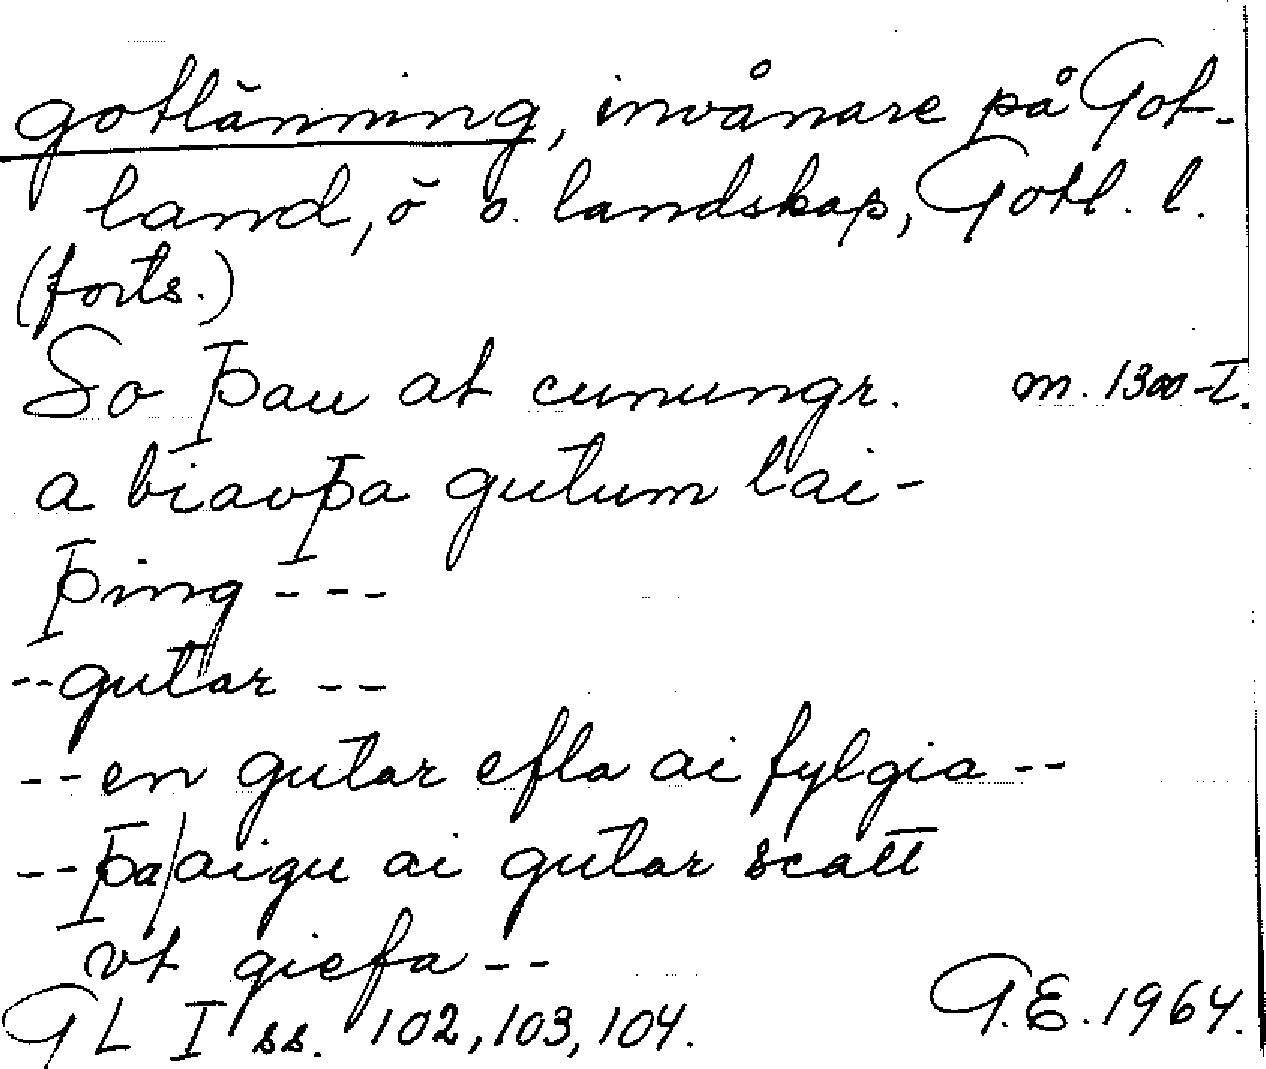 gotlänning, invånare på Got-
land, ö o. landskap, Gotl. l.
(forts.)
So þau at cunungr. m. 1300-t.
a biauþa gutum lai-
þing ---
--gutar --
--en gutar efla ai fylgia--
--þa/aigu ai gutar scatt
vt giefa--
GL I ss. 102, 103, 104. G.E. 1964.